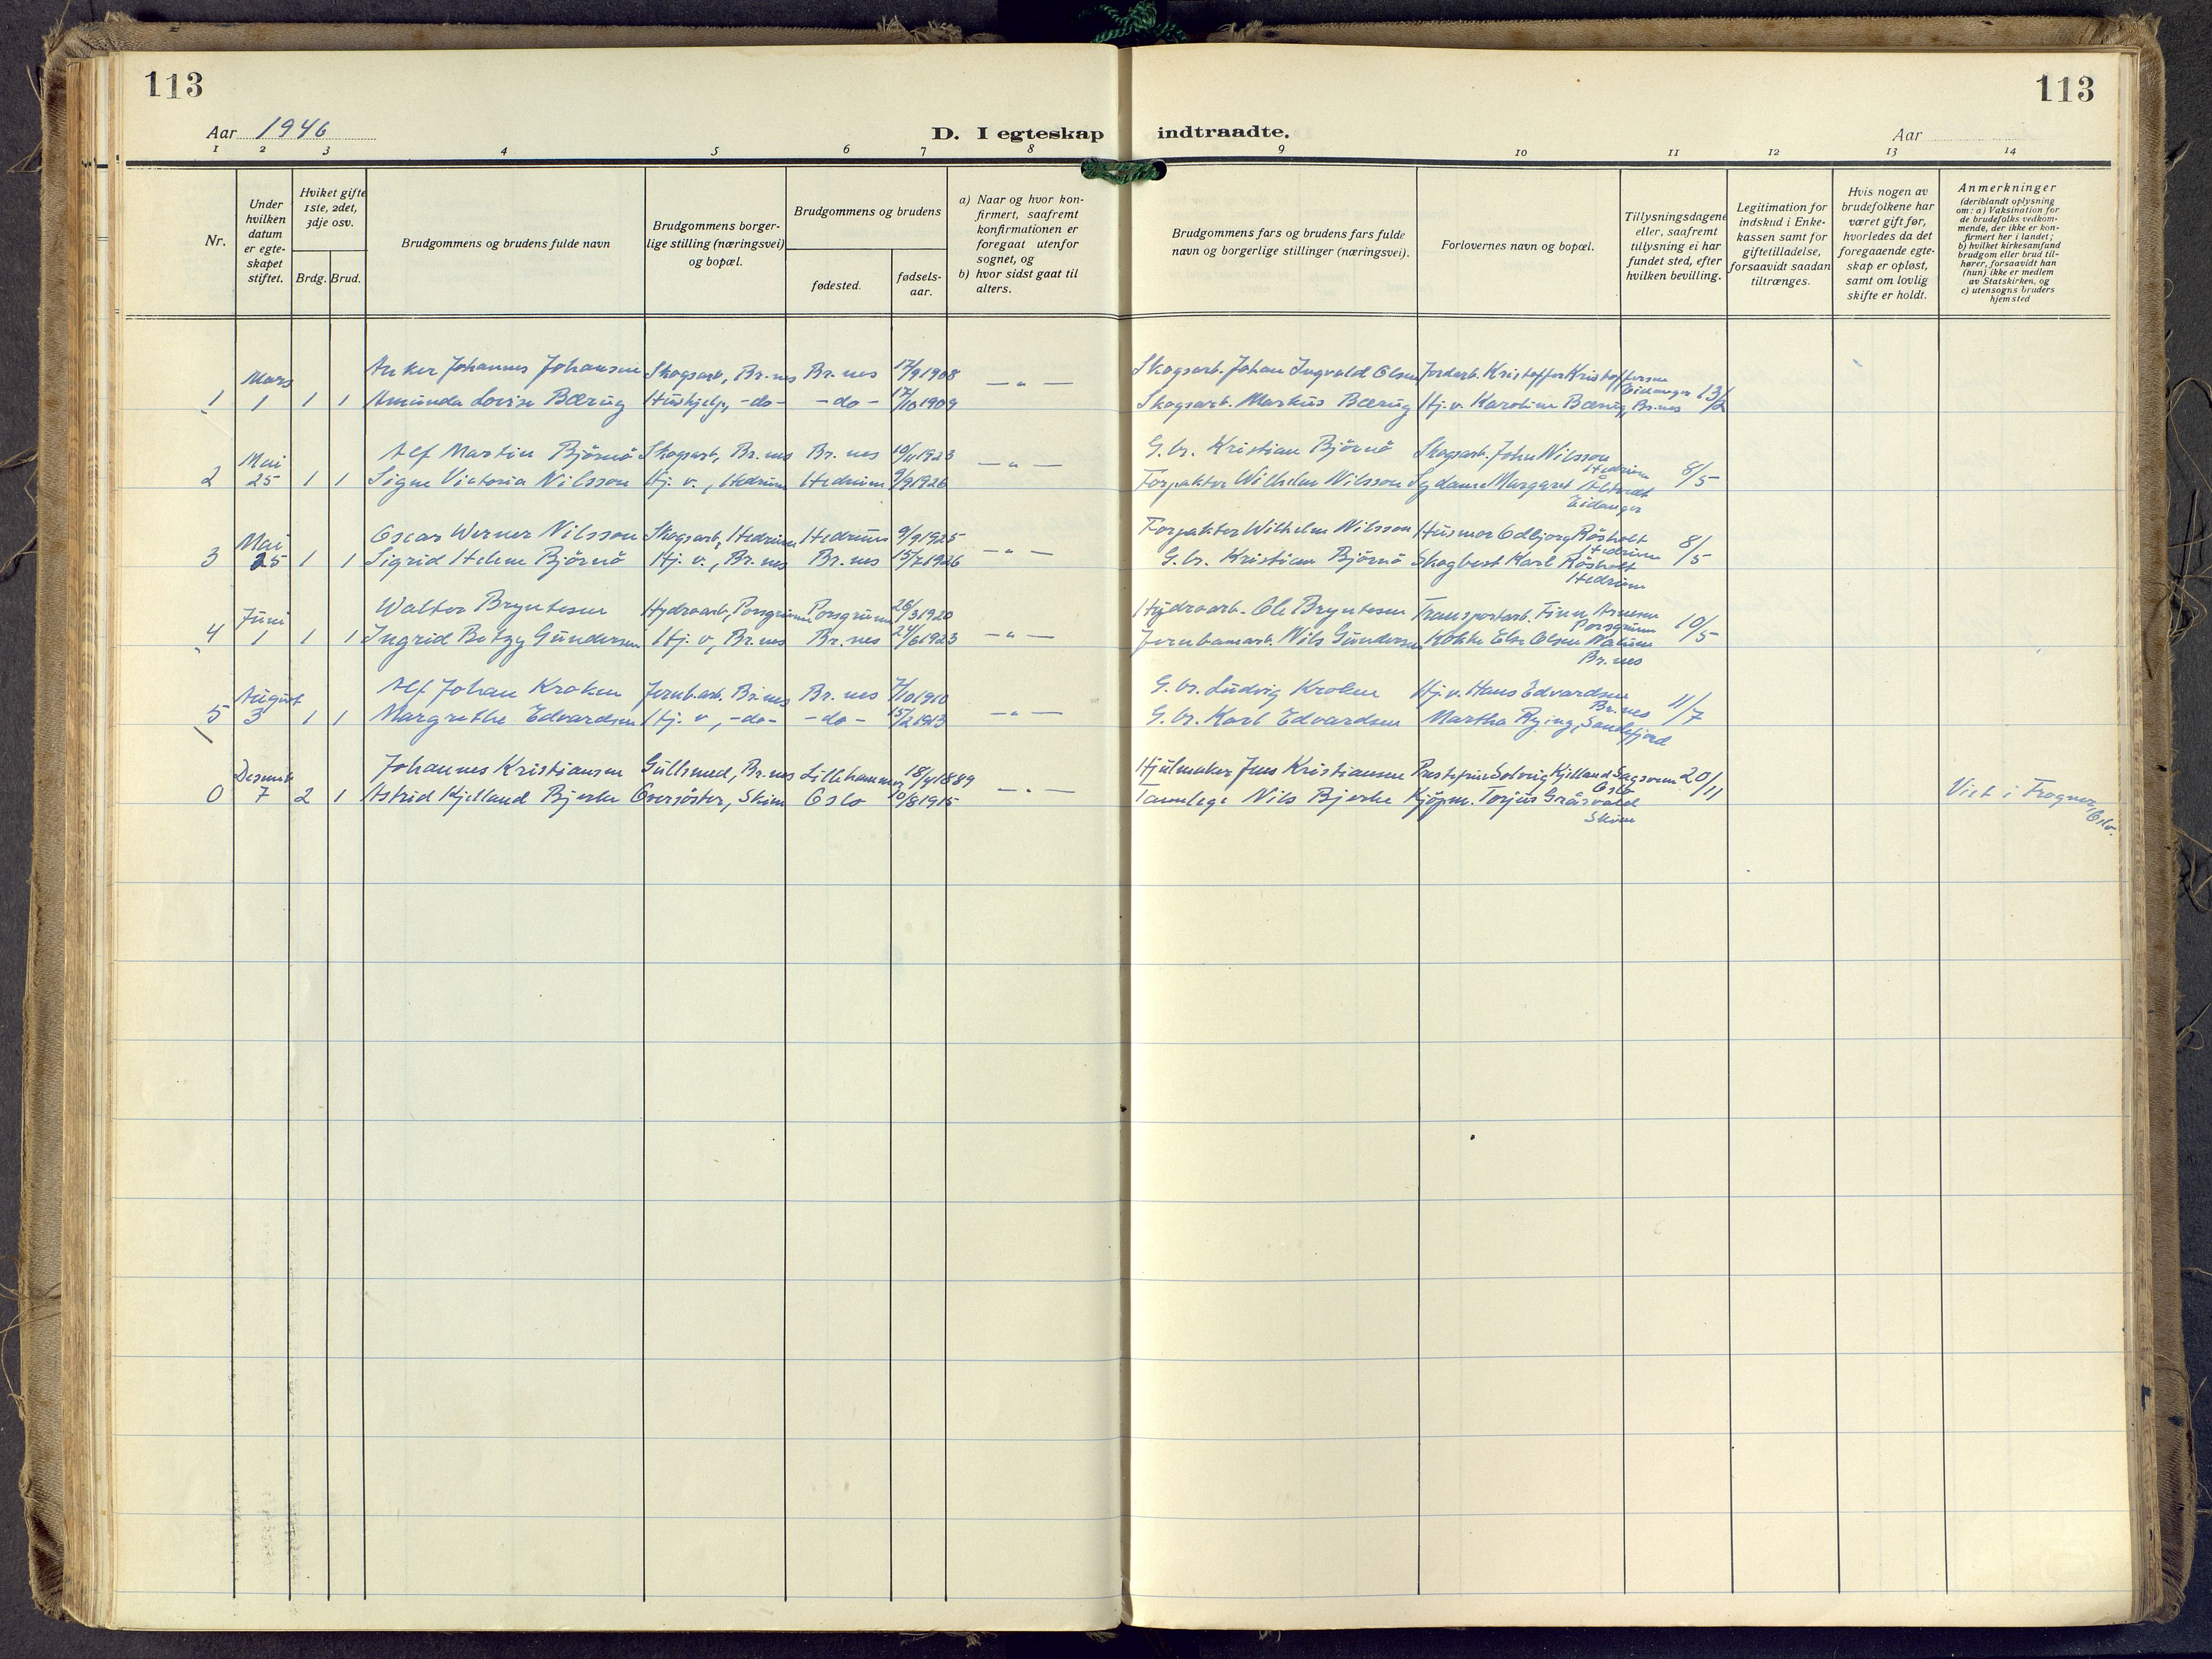 113
113
Aar 1946
D. I egteskap indtraadte.
Aar
1 2 3 4 5 6 7 8 9 10 11 12 13 14
Nr.
Under hvilken datum er egte-skapet stiftet.
Hvilket gifte 1ste, 2det, 3dje osv.
Brdg. Brud.
Brudgommens og brudens fulde navn
Brudgommens borger-lige stilling (næringsvei) og bopæl.
Brudgommens og brudens
fødested.
fødsels-aar.
a) Naar og hvor kon-firmert, saafremt konfirmationen er foregaat utenfor sognet, og
b) hvor sidst gaat til alters.
Brudgommens fars og brudens fars fulde navn og borgerlige stillinger (næringsvei).
Forlovernes navn og bopæl.
Tillysningsdagene eller, saafremt tillysning ei har fundet sted, efter hvilken bevilling.
Legitimation for indskud i Enke-kassen samt for giftetilladelse, forsaavidt saadan tiltrænges.
Hvis nogen av brudefolkene har været gift før, hvorledes da det foregaaende egte-skap er opløst, samt om lovlig skifte er holdt.
Anmerkninger (deriblandt oplysning om: a) Vaksination for de brudefolks vedkom-mende, der ikke er kon-firmert her i landet; b) hvilket kirkesamfund brudgom eller brud til-hører, forsaavidt han (hun) ikke er medlem av Statskirken, og c) utensogns bruders hjemsted
Mars Anker Johannes Johansen Skogsarb, Br.nes Br.nes 17/9 1908 Skogsarb. Johan Ingvald Olsen Jordarb. Kristoffer Kristoffersen Eidanger
1 1 1 1 Amunda Lovise Bærug Hushjelp, -do- -do- 17/10 1909 — " — Skogsarb. Markus Bærug Hj.v. Karoline Bærug, Br.nes 13/2
Mai Alf Martin Björnö Skogsarb, Br.nes Br.nes 1923 G.br. Kristian Björnö Skogsarb. John Nilsson Hedrum
2 25 1 1 Signe Victoria Nilsson Hj.v., Hedrum Hedrum 9/9 1926 — " — Forpakter Wilhelm Nilsson Sydame Margaret Eidanger 8/5
Mai Oscar Werner Nilsson Skogsarb, Hedrum Hedrum 9/9 1925 Forpakter Wilhelm Nilsson Husmor Odbjorg Røsholt Hedrum
3 25 1 1 Sigrid Helene Björnö Hj.v., Br.nes Br.nes 1926 — " — G.br. Kristian Björnö Skogbest Karl Røsholt Hedrum 8/5
Juni Walter Bryntesen Hydroarb, Porsgrunn Porsgrunn 26/3 1920 Hydroarb. Ole Bryntesen Transportarb. Finn Arnesen Porsgrunn
4 1 1 1 Ingrid Betzy Gundersen Hj.v, Br.nes Br.nes 24/6 1923 — " — Jernbanearb. Nils Gundersen Kokke Else Olsen Br.nes 10/5
August Alf Johan Kroken Jernb.arb. Br.nes Br.nes 7/10 1910 G.br. Ludvig Kroken Hj.v. Hans Edvardsen Br.nes
5 3 1 1 Margrethe Edvardsen Hj.v, -do- -do- 15/2 1913 — " — G.br. Karl Edvardsen Martha Rying, Sandefjord 11/7
Desemb Johannes Kristiansen Gullsmed, Br.nes Lillehammer 18/9 1889 Hjulmaker Jens Kristiansen Prestefrue Solveig Kjelland Sagsveen Oslo
0 7 2 1 Astrid Kjelland Bjerke Oversöster, Skien Oslo 1915 — " — Tannlege Nils Bjerke Kjøpm. Torjus Gråsvold Skien 20/11 Viet i Frogner, Oslo.